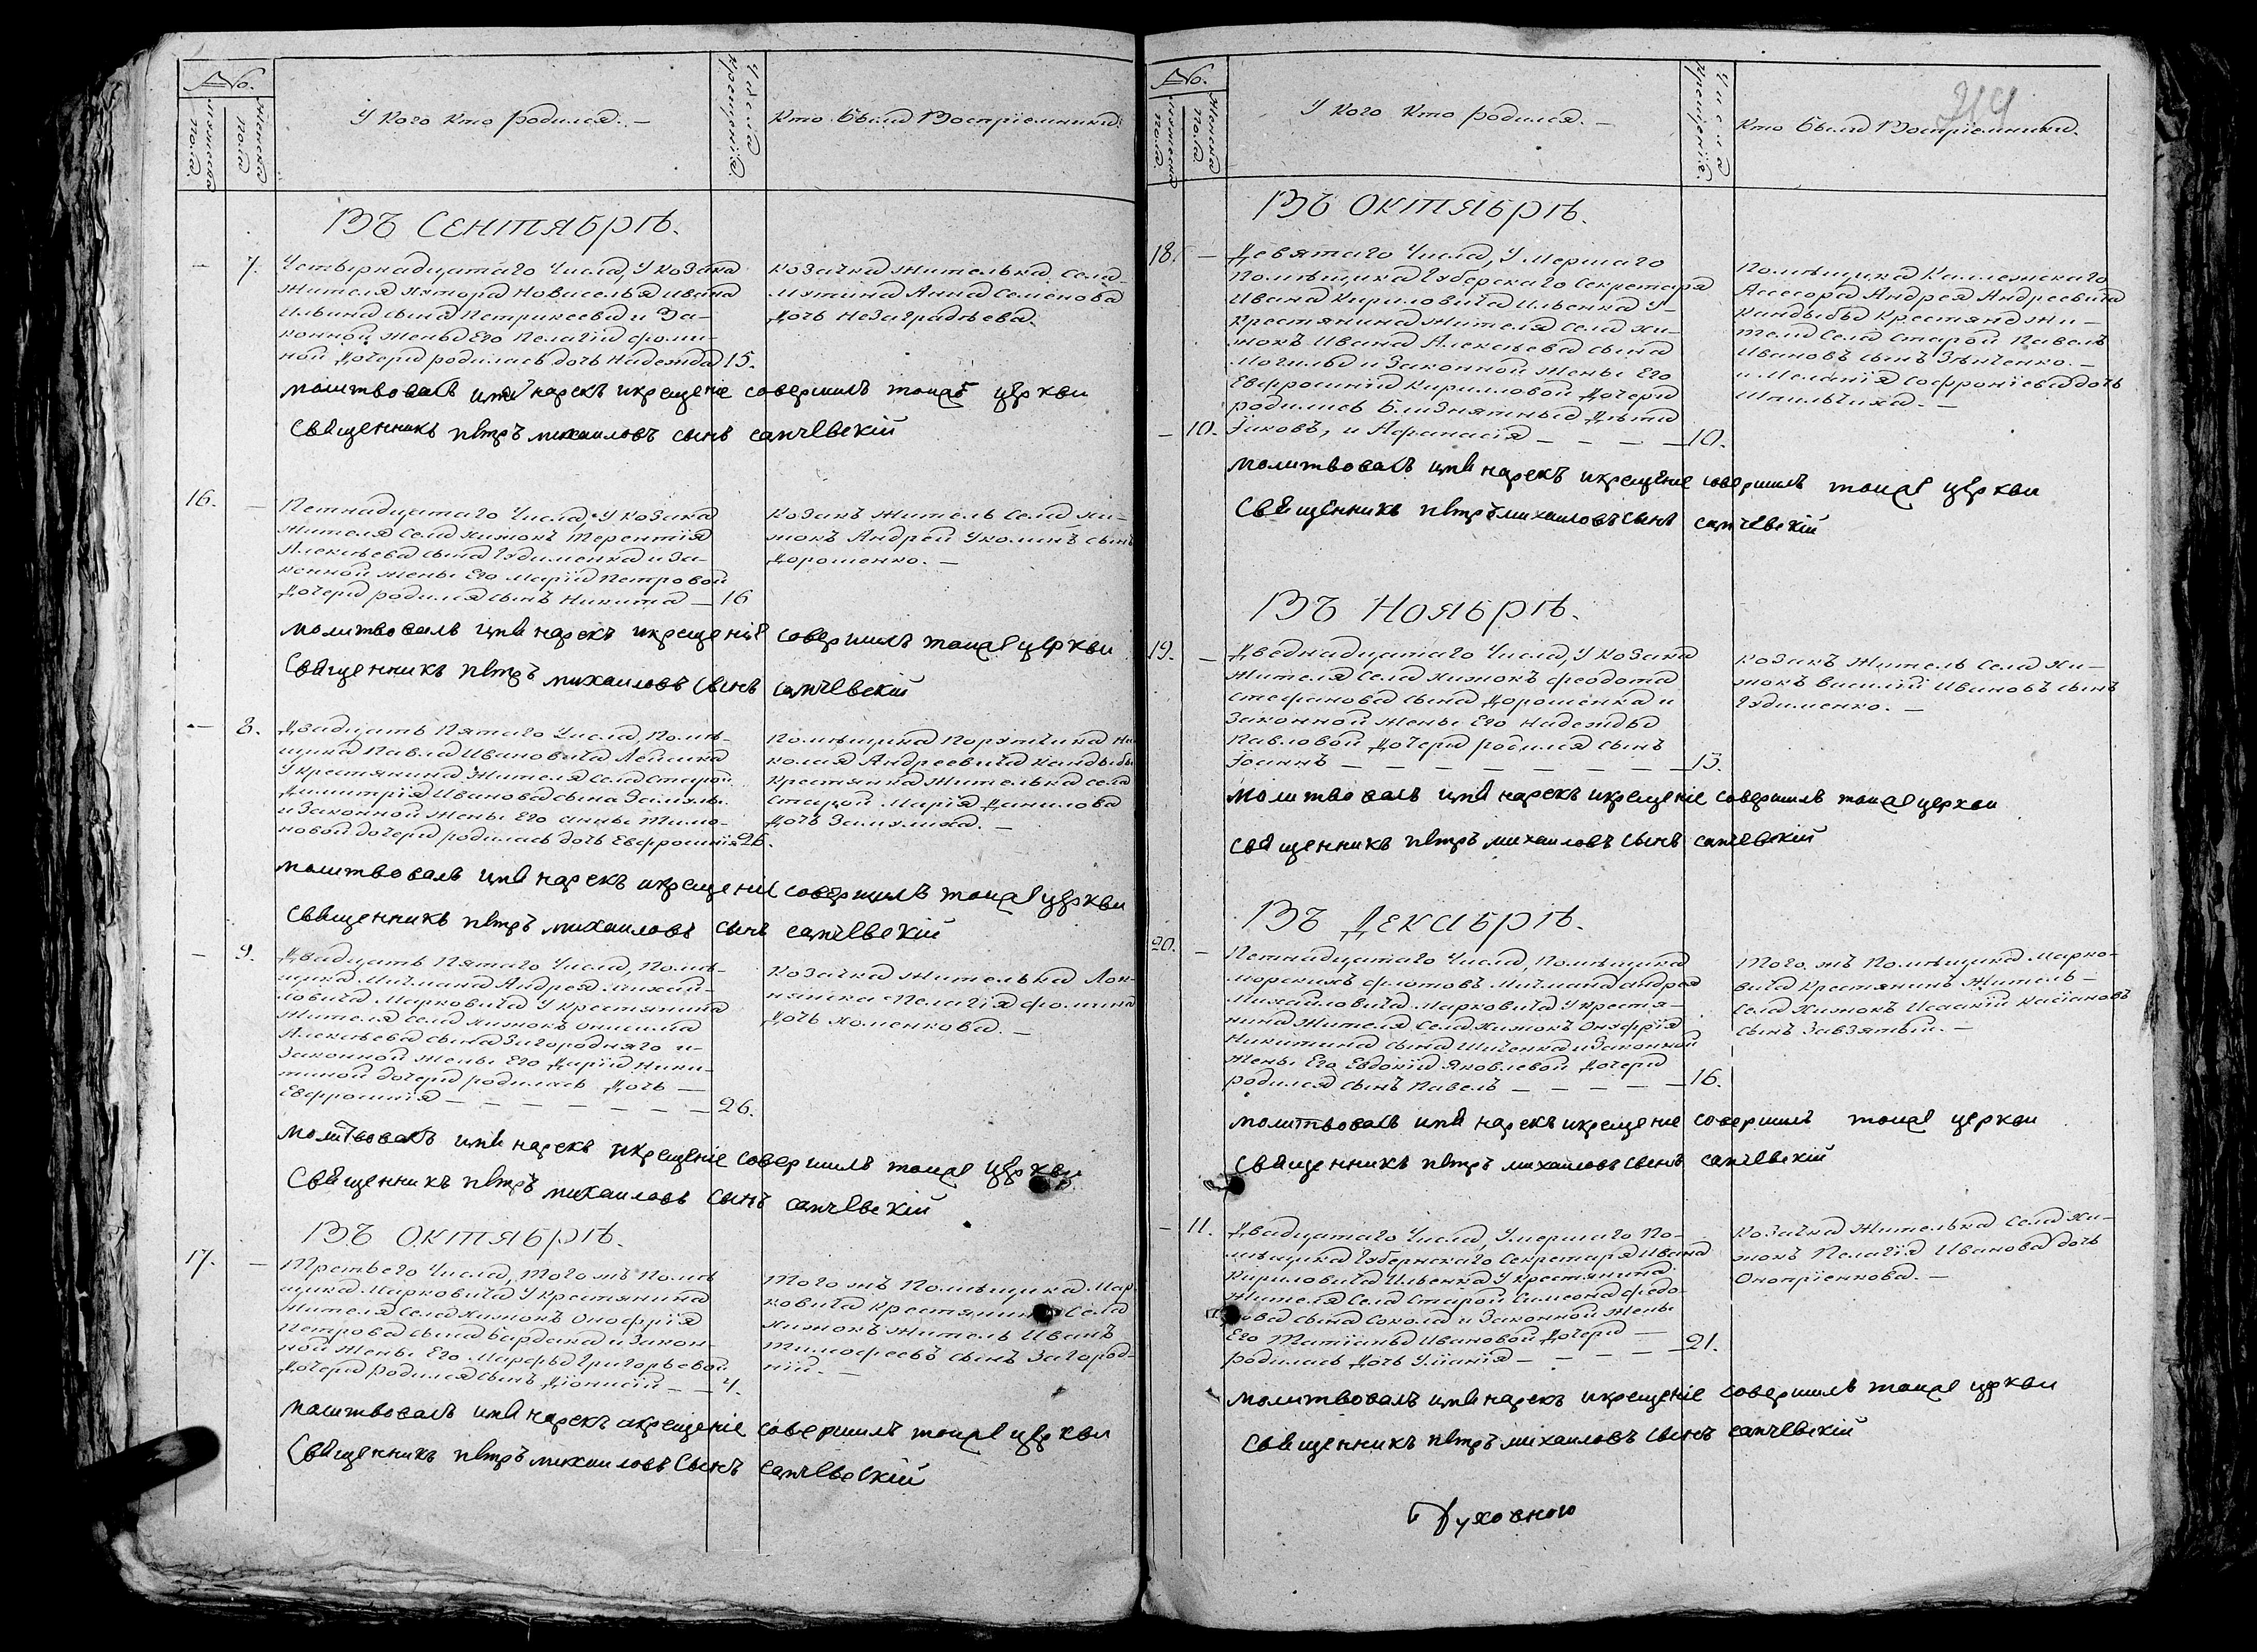 №.
Мужеска пола.
Женска пола
У кого кто родился. —
Числа крещенїя.
Кто были Воспрїемники.
Въ Сентябрѣ.
— 7. Четырнадцатаго Числа, У козака
жителя хутора Новиселья Ивана
Ильина сына Петрикеева и За-
конной жены Его Пелагїи Фоми-
ной дочери родилась дочь Надежда 15.
Козачка жителька села
Мутина Анна Семенова
дочь Незаградѣева.
молитвовалъ имя нарекъ и крещенїе совершилъ тоия церкви
Священникъ петръ михаиловъ сынъ
16. — Петнадцатаго Числа, У козака
жителя села хижокъ Терентїя
Алексѣева сына Гудименка и За-
конной жены Его Марїи Петровой
дочери родился сынъ Никита — 16
Козакъ житель села хи-
жокъ Андрей сынъ
Дорошенко. —
молитвовалъ имя нарекъ и крещенїе совершилъ тоия церкви
Священникъ петръ михаиловъ сынъ
— 8. Двадцать Пятаго Числа, Помѣ-
щика Павла Ивановича
У крестянина жителя села Старой
Димитрїя Иванова сына
и Законной жены Его Анны Тимо-
новой дочери родилась дочь Евфросинїя 26.
Помѣщика Порутчика Ни
колая Андреевича Кандыбы
крестянка жителька села
Старой Марїя Данилова
дочь Замулиха. —
молитвовалъ имя нарекъ и крещенїе совершилъ тоия церкви
Священникъ петръ михаиловъ сынъ
— 9. Двадцать Пятаго Числа, Помѣ-
щика Мичмана Андрея Михай-
ловича Марковича У крестянина
жителя села хижокъ Онисима
Алексѣева сына Загородняго и
Законной жены Его Дарїи Ники-
тиной дочери родилась дочь —
Евфросинїя — — — — — — — 26.
Козачка жителька
Пелагїя Фомина
дочь Хоменкова. —
молитвовалъ имя нарекъ и крещенїе совершилъ тоия церкви
Священникъ петръ михаиловъ сынъ
Въ Октябрѣ.
17. — Третьего Числа, Того жъ Помѣ
щика Марковича У крестянина
жителя села хижокъ Онофрїя
Петрова сына Бардака и Закон-
ной жены Его Марфы Григорьевой
дочери родился сынъ Дїонисїй — — 4.
Того жъ Помѣщика Мар-
ковича крестянинъ села
хижокъ житель Иванъ
Тимофеевъ сынъ Загород-
нїй. —
молитвовалъ имя нарекъ и крещенїе совершилъ тоия церкви
Священникъ петръ михаиловъ сынъ
№.
Мужеска пола.
Женска пола.
У кого кто родился. —
Числа крещенїя.
Кто были Воспрїемники.
Въ Октябрѣ.
18. — Девятаго Числа, Умершаго
Помѣщика Губерскаго Секретаря
Ивана Кириловича Ильенка У
крестянина жителя села хи-
жокъ Ивана Алексѣева сына
Могилы и Законной жены Его
Евфросинїи Кирилловой дочери
родились Близнятныя дѣти
— 10. Їаковъ, и Афанасїя — — — — 10.
Помѣщика Коллежскаго
Асесора Андрея Андреевича
Кандыбы крестяне жи-
тели села Старой Павелъ
Ивановъ сынъ —
и Меланїя Софронїева дочь
молитвовалъ имя нарекъ и крещенїе совершилъ тоия церкви
Священникъ петръ михаиловъ сынъ
Въ Ноябрѣ.
19. — Двенадцатаго Числа, У козака
жителя села хижокъ Феодота
Стефанова сына Дорошенка и
Законной жены Его Надежды
Павловой дочери родился сынъ
Їоаннъ — — — — — — — — 13.
Козакъ житель села хи-
жокъ Василїй Ивановъ сынъ
Гудименко. —
молитвовалъ имя нарекъ и крещенїе совершилъ тоия церкви
Священникъ петръ михаиловъ сынъ
Въ Декабрѣ.
20. — Петнадцатаго Числа, Помѣщика
морскихъ флотовъ Мичмана Андрея
Михайловича Марковича У крестя-
нина жителя села хижокъ Онуфрїя
Никитина сына и Законной
жены Его Евдокїи Яковлевой дочери
родился сынъ Павелъ — — — — — 16.
Того жъ Помѣщика Марко-
вича крестянинъ житель
села хижокъ Исаакїй Касїановъ
сынъ Завзятый. —
молитвовалъ имя нарекъ и крещенїе совершилъ тоия церкви
Священникъ петръ михаиловъ сынъ
— 11. Двадцатаго Числа, Умершаго По-
мѣщика Губернскаго Секретаря Ивана
Кириловича Ильенка У крестянина
жителя села Старой Симеона Федо-
това сына Сокола и Законной жены
Его Татїаны Ивановой дочери —
родилась дочь Улїанїя — — — — 21.
Козачка жителька села хи-
жокъ Пелагїя Иванова дочь
Оноприенкова. —
молитвовалъ имя нарекъ и крещенїе совершилъ тоия церкви
Священникъ петръ михаиловъ сынъ
Духовного